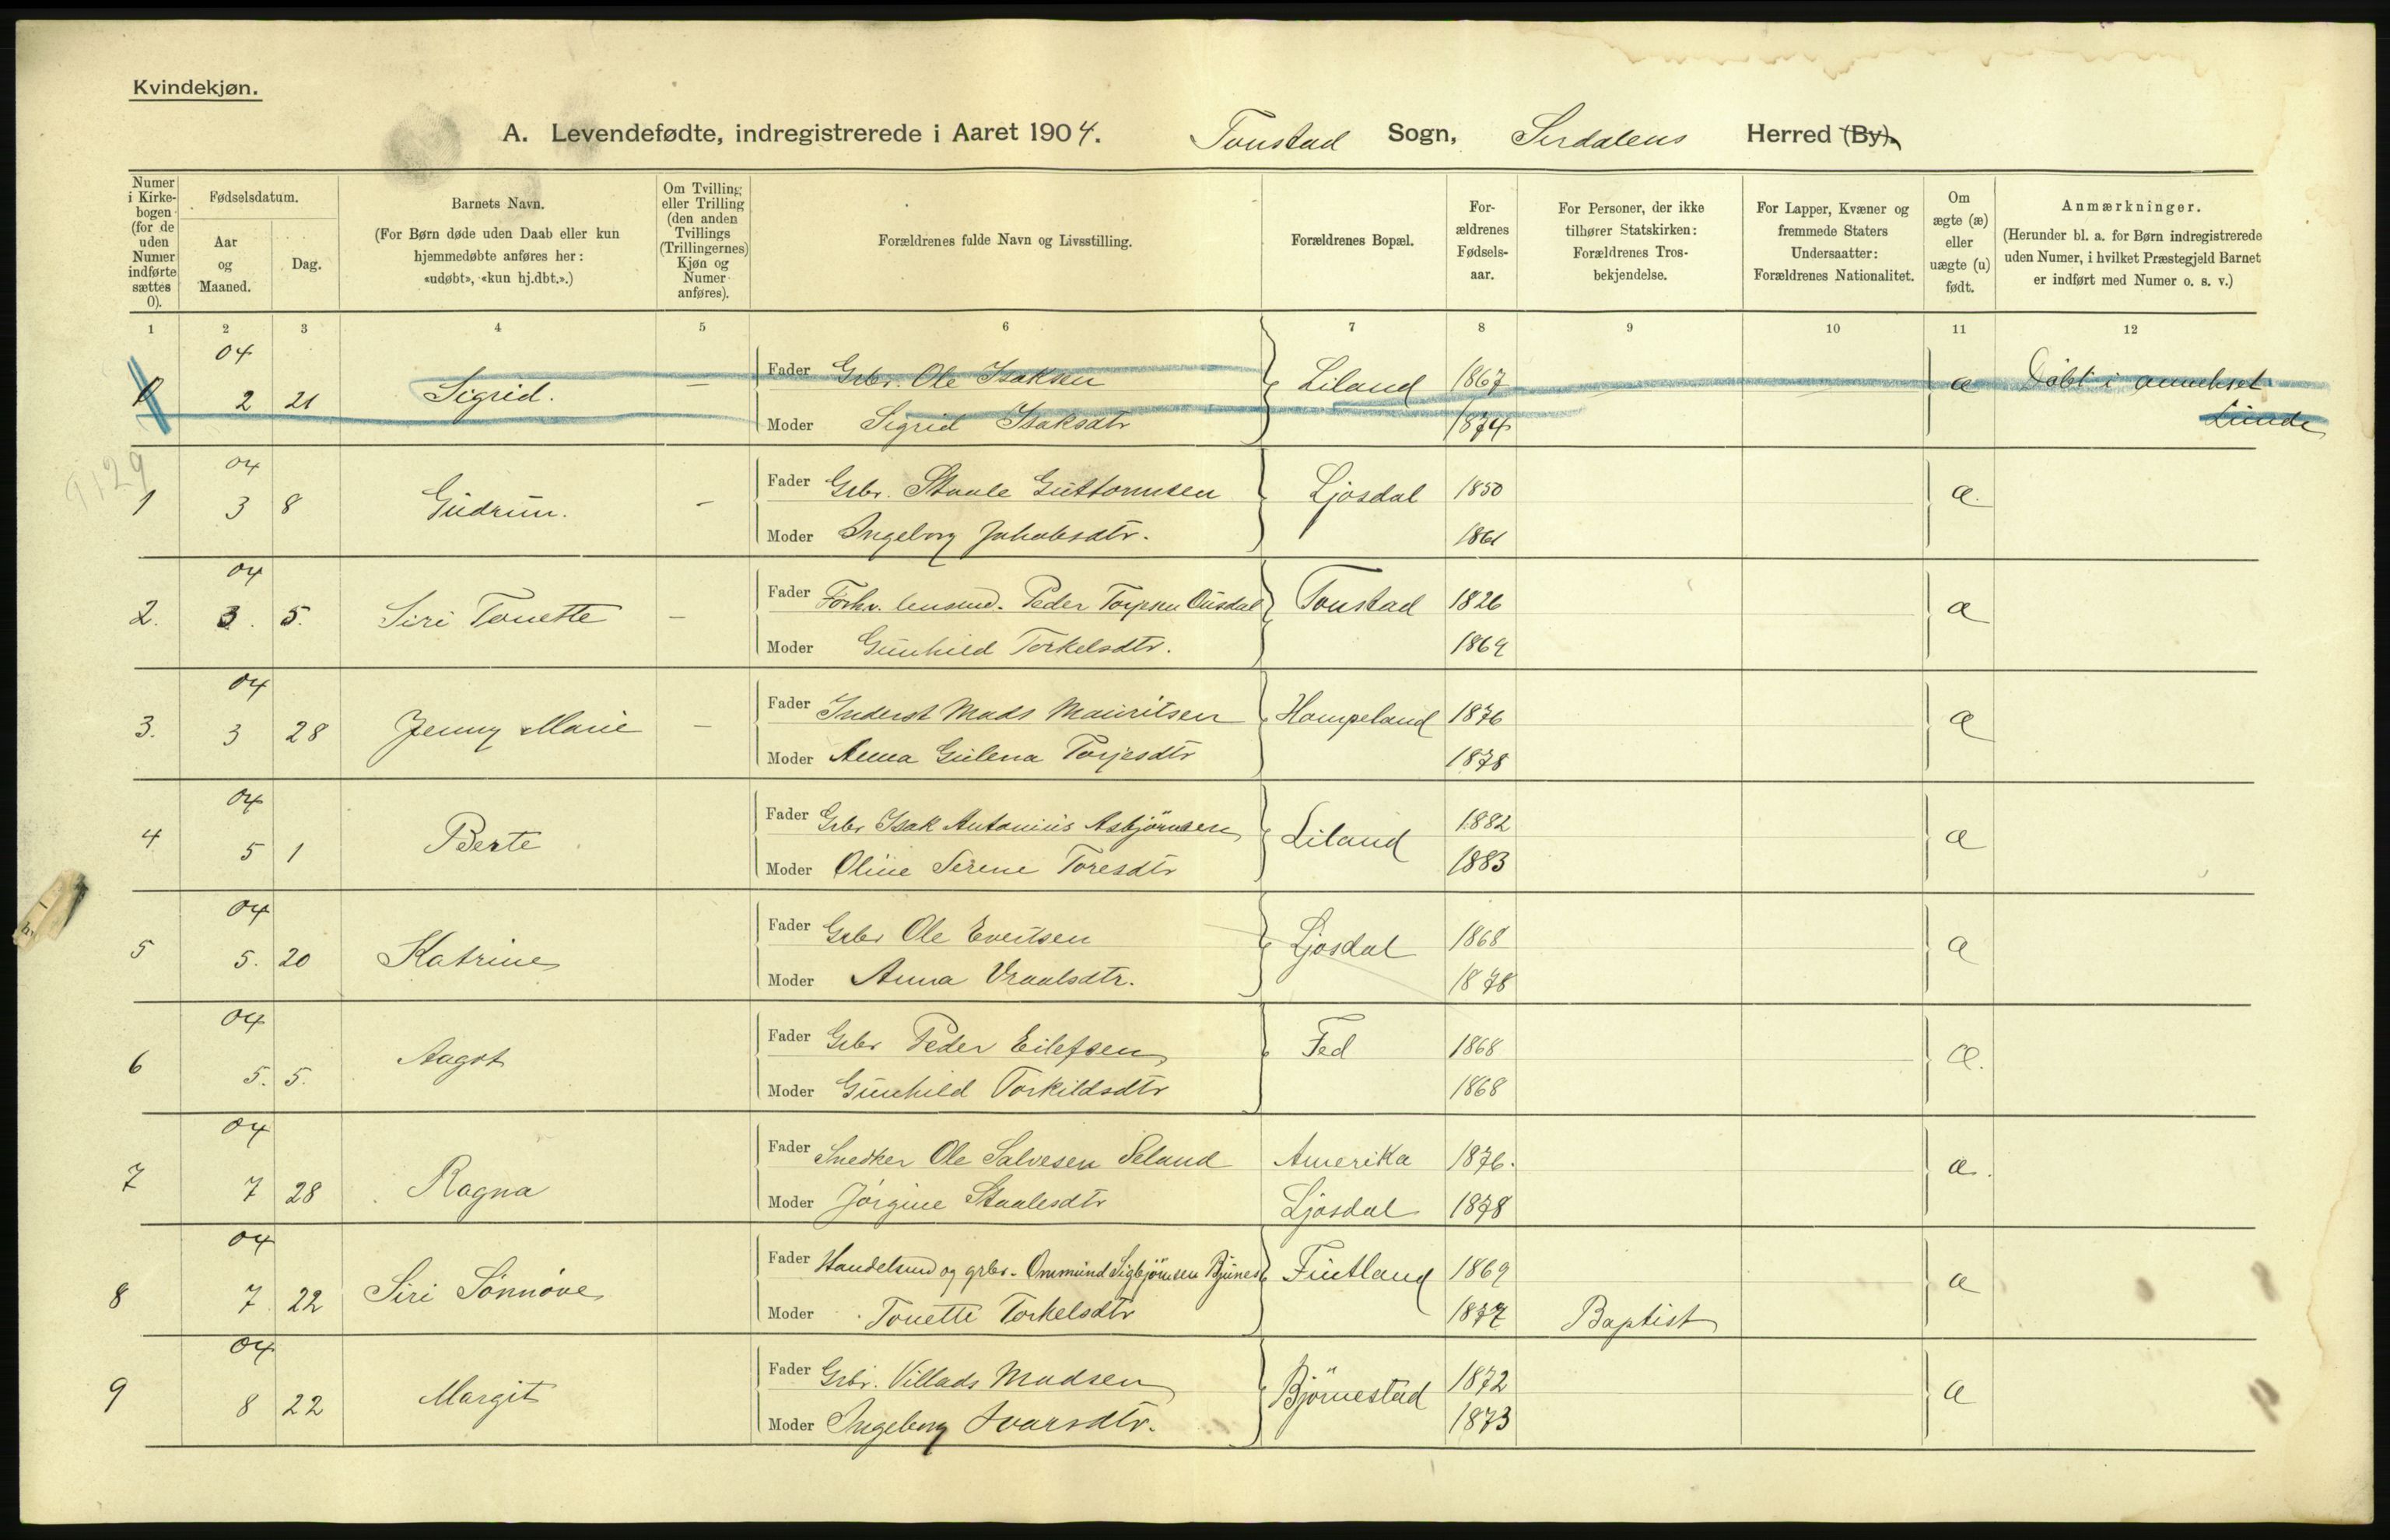 Kvindekjøn.
A. Levendefødte, indregistrerede i Aaret 1904. Tonstad Sogn, Sirdalens Herred (By).
Numer i Kirkebogen (for de uden Numer indførte sættes 0).
Fødselsdatum.
Aar og Maaned.
Dag.
Barnets Navn.
(For Børn døde uden Daab eller kun hjemmedøbte anføres her: «udøbt», «kun hj.dbt.».)
Om Tvilling eller Trilling (den anden Tvillings (Trillingernes) Kjøn og Numer anføres).
Forældrenes fulde Navn og Livsstilling.
Forældrenes Bopæl.
Forældrenes Fødselsaar.
For Personer, der ikke tilhører Statskirken: Forældrenes Trosbekjendelse.
For Lapper, Kvæner og fremmede Staters Undersaatter: Forældrenes Nationalitet.
Om ægte (æ) eller uægte (u) født.
Anmærkninger.
(Herunder bl. a. for Børn indregistrerede uden Numer, i hvilket Præstegjeld Barnet er indført med Numer o. s. v.)
1 2 3 4 5 6 7 8 9 10 11 12
04
0 2 21 Sigrid. — Fader Grbr. Ole Isaksen Liland 1867 æ Døbt i annekset
Moder Sigrid Isaksdtr 1874 Lunde
9129
04
1 3 8 Gudrun. - Fader Grbr. Staale Guttormsen Ljosdal 1850 æ.
Moder Ingeborg Jakobsdtr. 1861
04
2. 3. 5. Siri Tonette — Fader Forhv. lensmd. Peder Torjesen Ousdal Tonstad 1826 æ
Moder Gunhild Torkelsdtr. 1869
04
3. 3 28 Jenny Marie — Fader Inderst Mads Mauritsen Hompeland 1876 æ
Moder Anna Gulena Torjesdtr 1878
04
4 5 1 Berte Fader Grbr Isak Antonius Asbjörnsen Liland 1882 æ
Moder Oline Serene Toresdtr 1883
04
5 5. 20 Katrine Fader Grbr Ole Evertsen Ljosdal 1868 æ
Moder Anna Vraalsdtr. 1878
04
6 5. 5. Aagot Fader Grbr Peder Eilefsen Fed 1868 æ.
Moder Gunhild Torkildsdtr 1868
04
7 7 28 Ragna Fader Snedker Ole Salvesen Seland Amerika 1876. æ.
Moder Jörgine Staalesdtr Ljosdal 1878
04
8 7 22 Siri Sönnöve Fader Handelsmd og grbr. Ommund Sigbjörnsen Bjunes Fintland 1869 æ
Moder Tonette Torkelsdtr 1877 Baptist
04
9 8 22 Margit Fader Grbr. Villads Madsen Björnestad 1872 æ
Moder Ingeborg Ivarsdtr. 1873